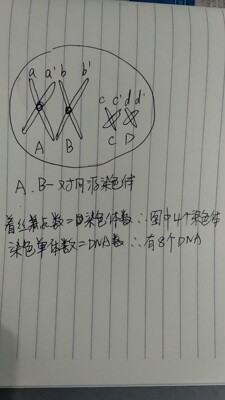 a a' b b'
c c' d d'
A B C D
A、B一对同源染色体
着丝点数=染色体数∴图中4个染色体
染色单体数=DNA数∴有8个DNA